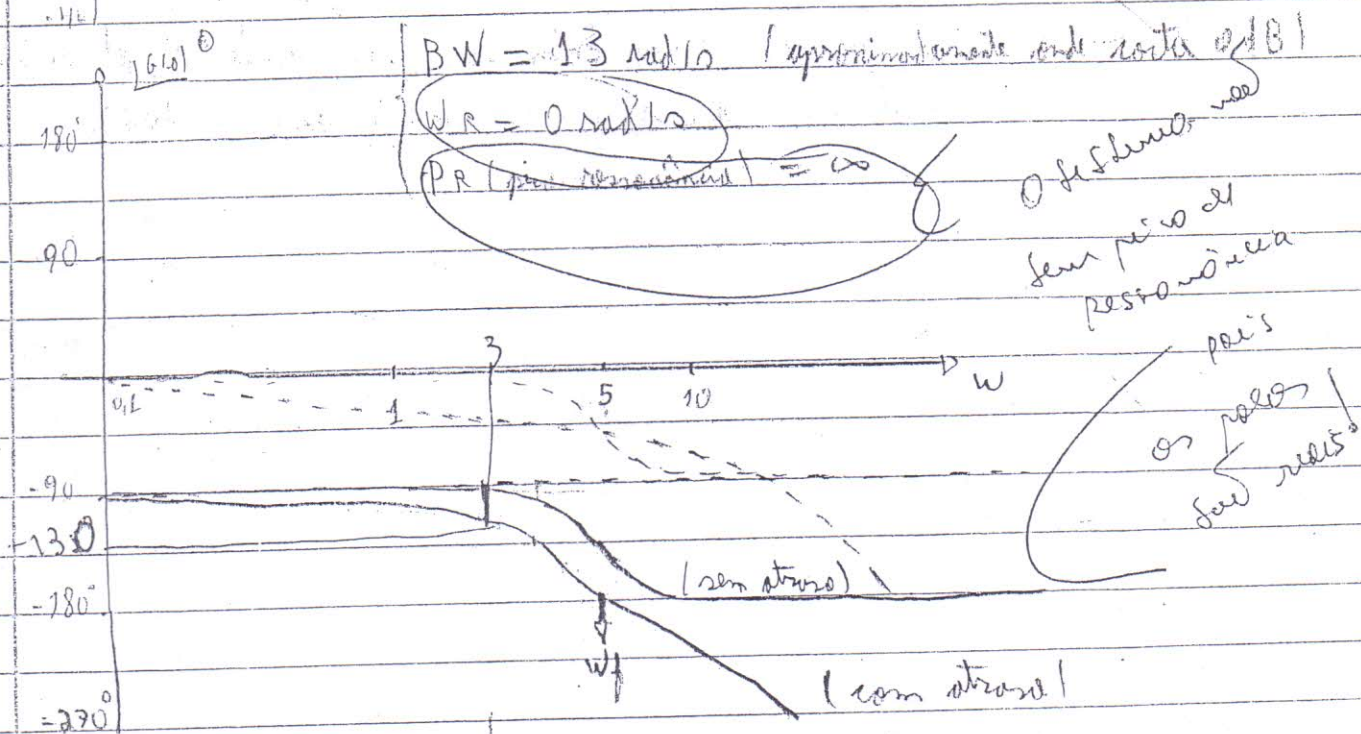 |G(s)|°
BW = 13 rad/s (aproximadamente onde corta 0dB)
WR = 0 rad/s
PR (pico ressonância) = ∞
O sistema não
tem pico de
ressonância
pois
os polos
são reais!
0
180°
90
-90
-130
-180°
-270°
0,1
1
3
5
10
W
(sem atraso)
Wf
(com atraso)